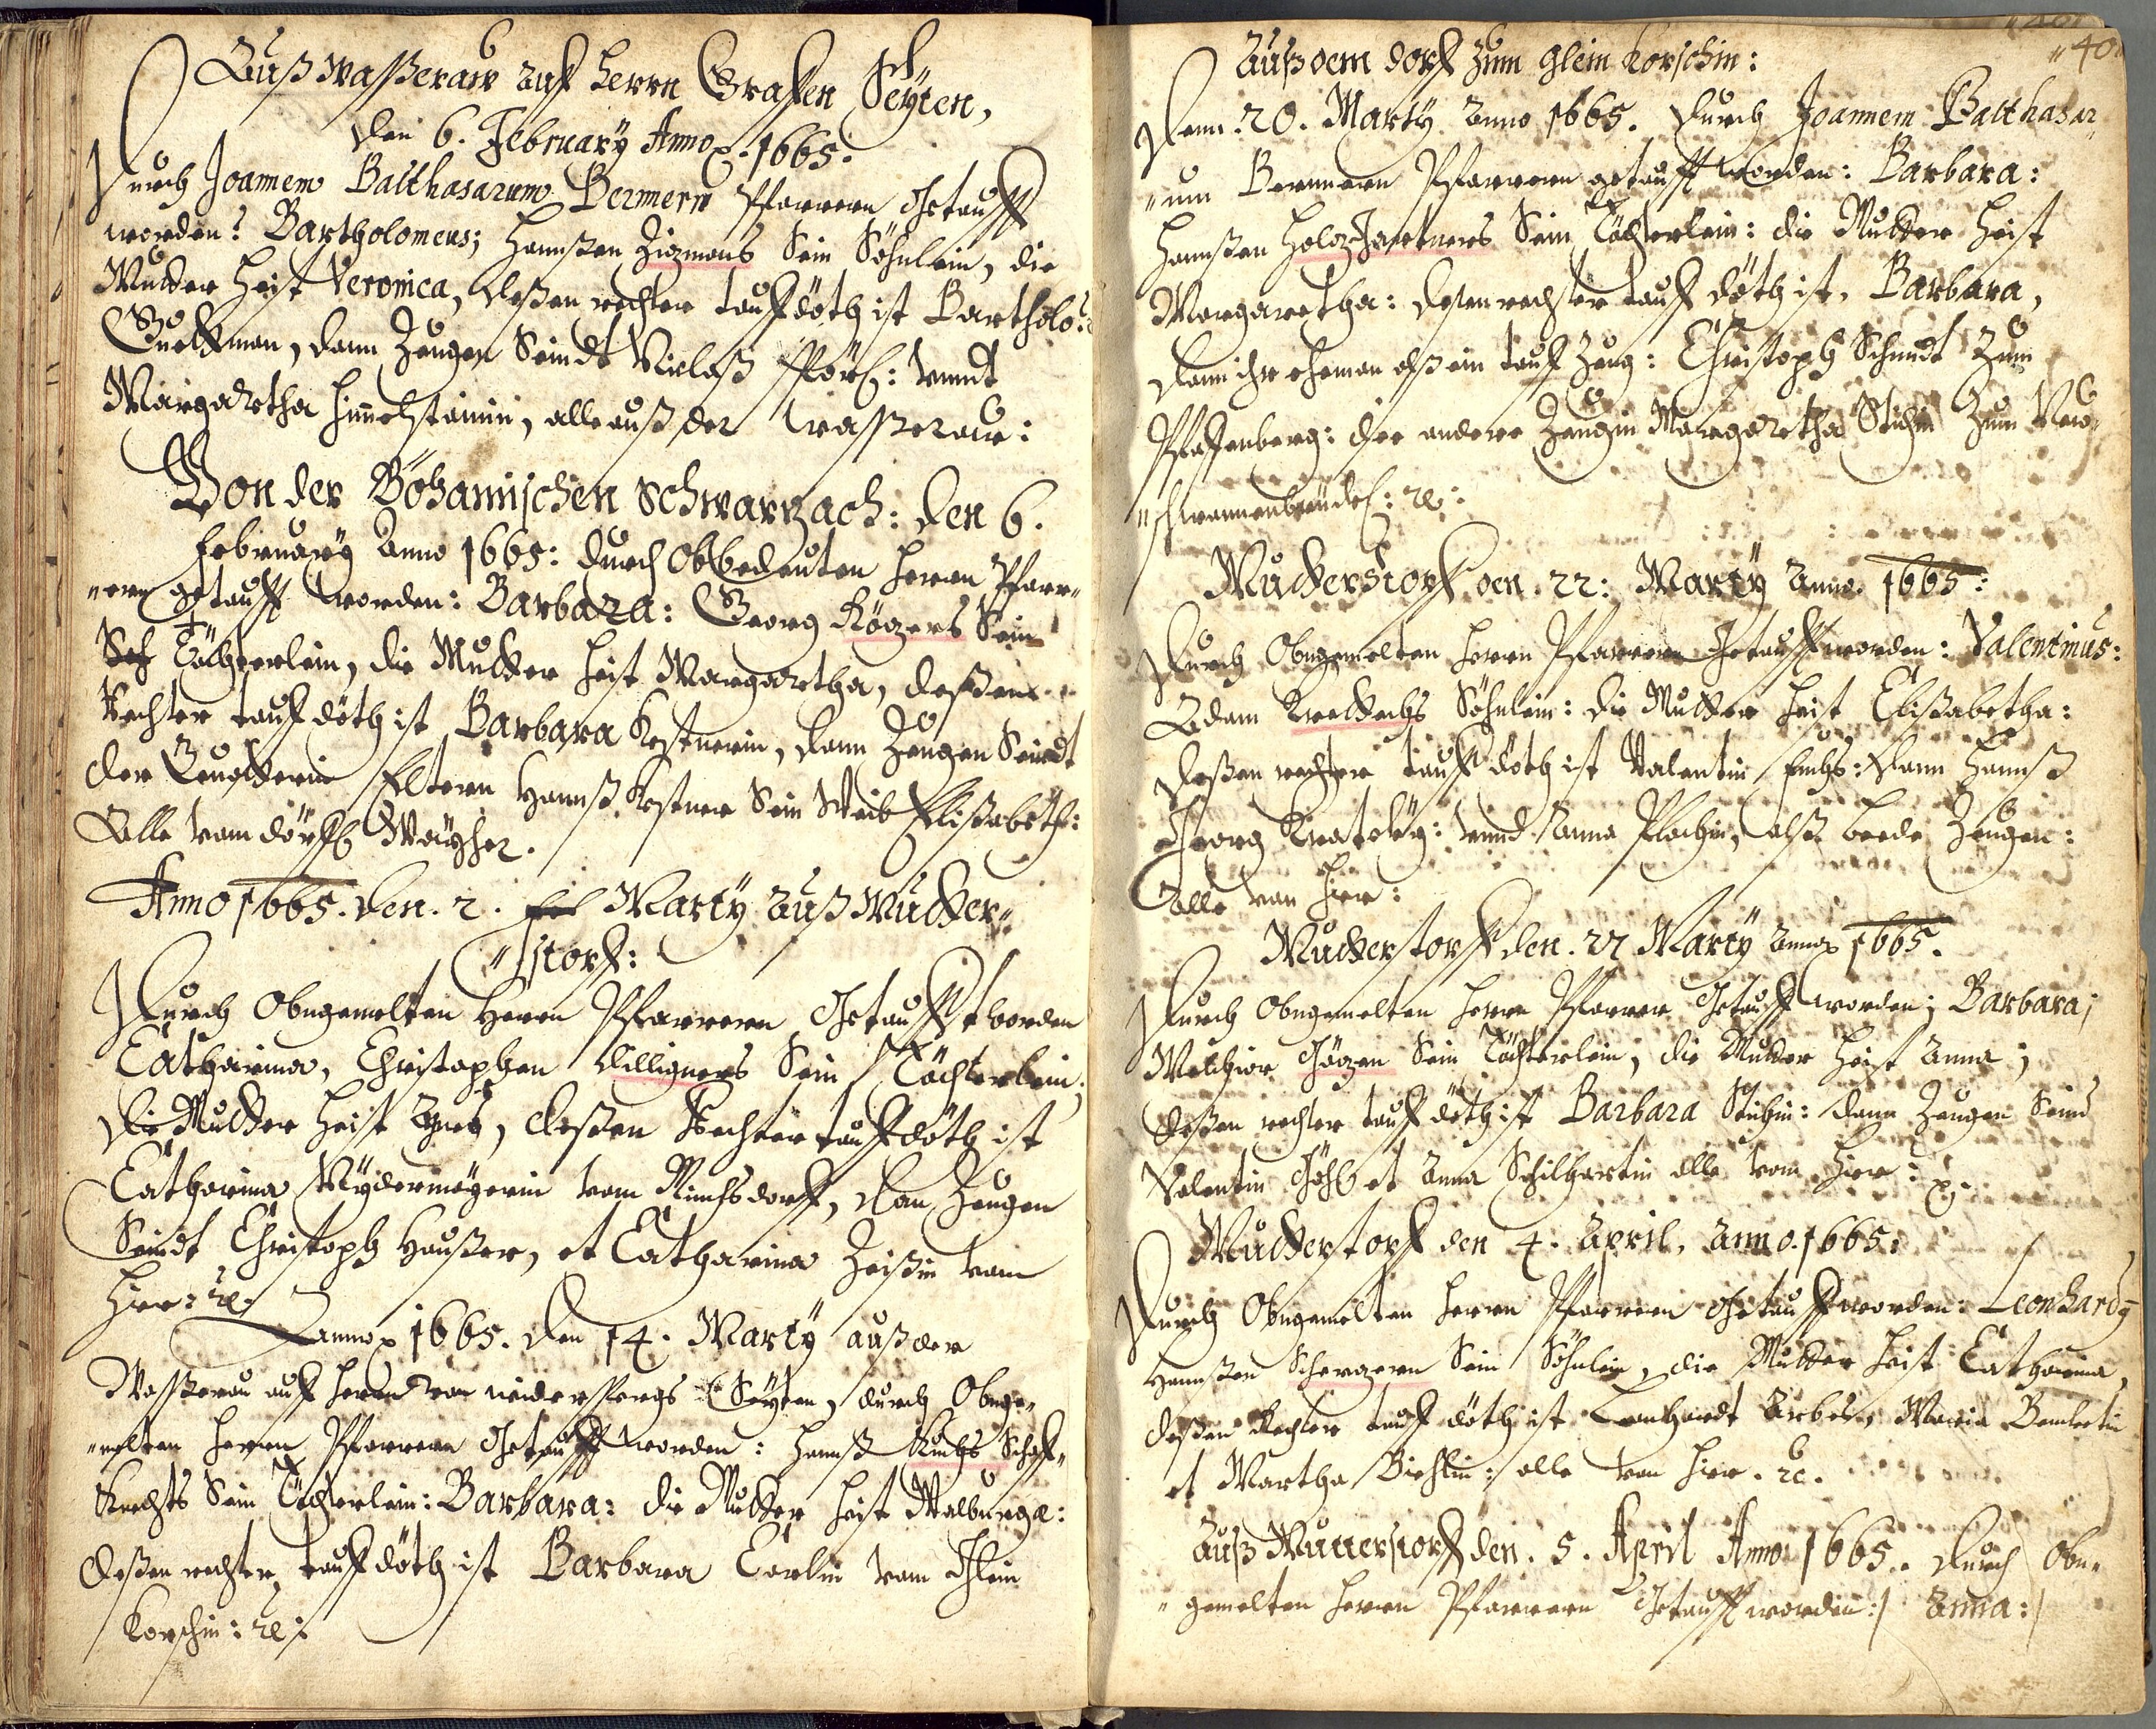 Auß Wasseraw auf Herrn Graffen Seÿten,
den 6. February Anno 1665.
Durch Joannem Balthasarum Bermern Pfarrern Getaufft
worden: Bartholomeus; Hannßen Zizmans Sein Söhnlein, die
Mutter heist Veronica, deßen rechter tauffdöth ist Bartholo:
man, dann Zeugen Seindt Niclaß vnndt
Margaretha Himelstainin, alle auß der Wasseraw:
Von der Böhamischen Schwarzach: den 6.
February Anno 1665: durch Obbedeuten Herrn Pfarr„
„ern getaufft worden: Barbara: Georg Rögers Sein
Töchterlein, die Mutter heist Margaretha, deßen
Rechter tauffdöth ist Barbara Kestnerin, dann Zeugen Seindt
der Eltern Hannß Kestner Sein Weib Elisabeth:
Alle vom dörffl Waÿher.
Anno 1665. den. 2. Marty Auß Mutters„
„storff:
Durch Obngemelten Herrn Pfarrern Getaufft worden
Catharina, Christophen Dilligners Sein Töchterlein,
die Mutter heist Agnes, deßen Rechter tauffdöth ist
Catharina Nÿdermäÿerin vom Minchsdorff, dan Zeugen
Seindt Christoph Haußer, et Catharina Zeißin vom
hier: ꝛc.
Anno 1665. den 14. Marty auß der
Wasserau auf Herrn von widerspergs Seÿten, durch Obnge„
„melten Herrn Pfarrern Getaufft worden: Hannß Fuchs Schaf„
Knechts Sein Töchterlein: Barbara: die Mutter heist Walburga:
deßen rechter tauffdöth ist Barbara Carlin vom Glein
Korschin: ꝛc:
„40.
Auß dem dorff zum glein Korschin:
Denn. 20. Marty Anno 1665. durch Joannem Balthasar„
„um Bermern Pfarrern getaufft worden: Barbara:
Hannßen Holzgartners Sein Töchterlein: die Mutter heist
Margaretha: deßen rechter tauff döth ist, Barbara,
dann ihr ehman alß ein tauff Zeug: Christoph Schmidt zum
Pfaffenberg: die andere Zeugin Margaretha Stichin zum New„
„schwannenbrückl: ꝛc:
Mutterstorff den. 22: Marty Anno. 1665:
Durch Obngemelten Herrn Pfarrern Getaufft worden: Valentinus:
Adam Söhnlein: die Mutter heist Elisabetha:
deßen rechter tauff döth ist Valentin Fuchs: dann Hannß
Georg: vnnd Anna Flachin, alß beede Zeugen:
Alle von hier:
Mutterstorff den. 27 Marty Anno 1665.
Durch Obngemelten Herrn Pfarrer Getaufft worden; Barbara;
Melchior Götzen Sein Töchterlein; die Mutter heist Anna;
deßen rechter tauff döth ist Barbara Stichin: dann Zeugen Seind
Valentin Göhl et Anna Schilhartin alle vom hier:
Mutterstorff den 4. April. Anno. 1665:
Durch Obngemelten Herrn Pfarrern Getaufft worden: Leonhardÿ
Hannßen Schertzern Sein Söhnlein, die Mutter heist Catharina,
deßen Rechter tauff döth ist Leonhardt Arbes, Maria
et Martha Bichlin: alle von hier. ꝛc.
Auß Mutterstorff den. 5. April Anno 1665. Durch Obn„
„gemelten Herrn Pfarrern Getaufft worden: Anna: